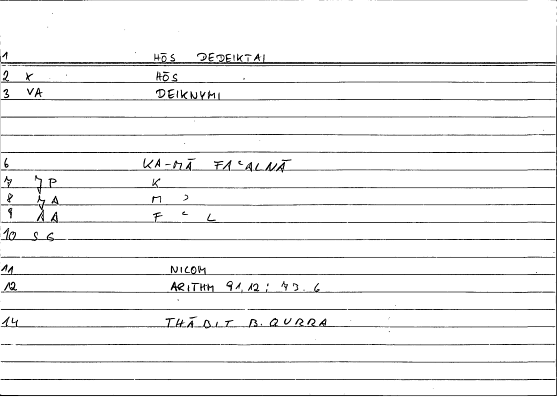 1 HŌS DEDEIKTAI
2 X HŌS
3 VA DEIKNYMI
6 KA-MĀ FAʿALNĀ
7 JP K
8 JA M ʾ
9 AA F ʿ L
10 SG
11 NICOM
12 ARITHM 91,12; 73.6
14 THĀBIT B. QURRA